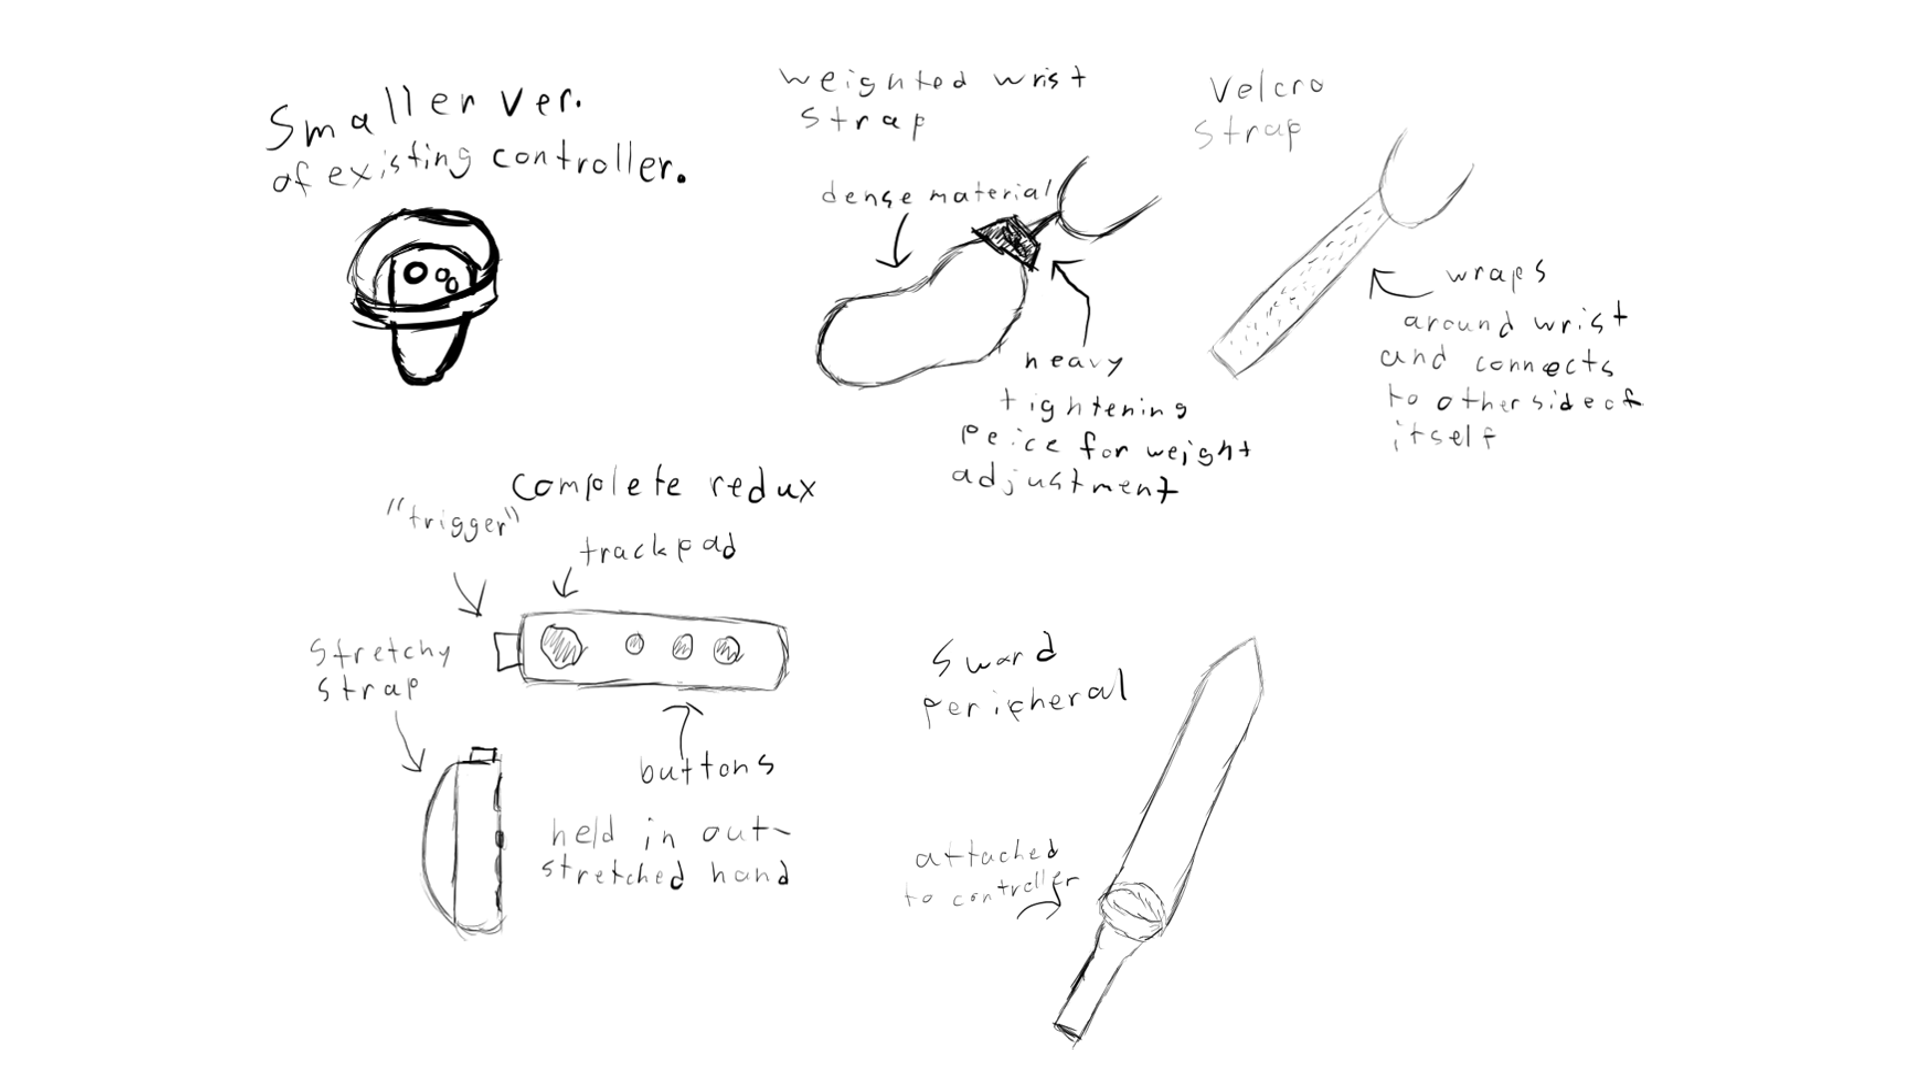 Smaller ver.
of existing controller.
weighted wrist
strap
dense material
heavy
tightening
peice for weight
adjustment
Velcro
strap
wraps
around wrist
and connects
to other side of
itself
complete redux
"trigger"
trackpad
stretchy
strap
buttons
held in out-
stretched hand
Sword
peripheral
attached
to controller